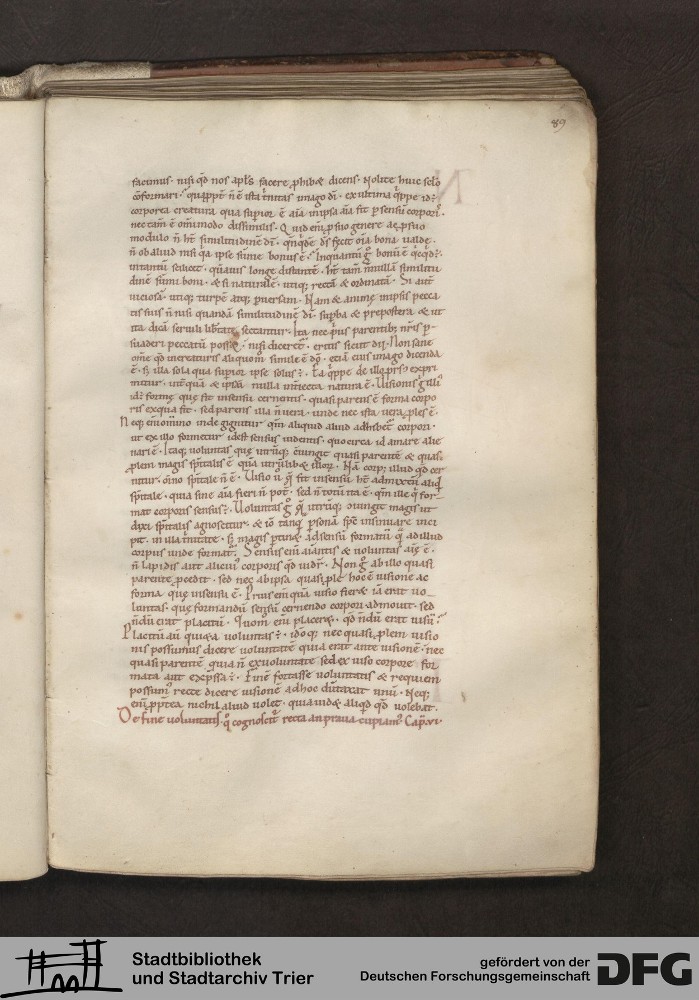 89
facimus · nisi qd̄ nos apl̄s facere ꝓhibæ dicens · Nolite huic sc̄lo
cōformari · quapp̄t n̄ ē ista t̓nitas imago dī · ex ultima q̓ppe id ē
corporea creatura qua sup̓ior ē aīa in ipsa aīa fit ꝑ sensū corporis ·
nec tam̄ ē om̄imodo dissimilis · Quid eni ꝑ suo genere ac ꝑ suo
modulo n̄ ht̄ similitudinē dī · qn̄q̓dē dī fecit oīa bona ualde ·
n̄ ob aliud nisi q̓a ipse sūme bonus ē · Inquantū g̊ bonū ē q̓cq̓d ē ·
intantū scilicet · quāuis longe distantē · ht̄ tam̄ n̄nullā similitu
dinē sūmi boni · & si naturalē · utiq; rectā & ordinatā · Si aut̄
uiciosā · utiq; turpē atq; ꝑuersam · Nam & animę in ipsis pecca
tis suis n̄ nisi quandā similitudinē dī · supba & prepostera · & ut
ita dicā seruili lib̄tate sectantur · Ita nec p̓mis parentib; nr̄is ꝑ
suaderi peccatū posset · nisi diceret̄ · eritis sicut dii · Non sane
om̄e qd̄ in creaturis aliquom̄ simile ē dō · etiā eius imago dicenda
ē · s; illa sola qua sup̓ior ipse solus ē · Ea q̓ppe de illo prs̄ expri
mitur · int̄ quā & ipsū nulla int̄iecta natura ē · Uisionis g̊ illi
id ē formę quę fit in sensu cernentis · quasi parens ē forma corpo
ris ex qua fit · sed parens illa n̄ uera · unde nec ista uera ꝓles ē ·
Neq; eni om̄ino inde gignitur · qm̄ aliquid aliud adhibet̄ corpori ·
ut ex illo formetur idest sensus uidentis · quo circa id amare alie
nari ē · Itaq; uoluntas quę utrūq; cōiungit quasi parentē & quasi
ꝓlem magis sp̄italis ē quā utrūlibæ illor̄ · Nā corp; illud qd̄ cer
nitur · om̄ino sp̄itale n̄ ē · Uisio ū q̄ fit in sensu · ht̄ admixtū aliq̓d
sp̄itale · quia sine aīa fieri n̄ pot̄ · sed n̄ totū ita ē · qm̄ ille q̓ for
mat̄ corporis sensus ē · Uoluntas g̊ q̄ utrūq; cōiungit magis ut
dixi sp̄italis agnoscitur · & iō tanq̄ ꝑsonā sp̄c insinuare inci
pit · in illa t̓nitate · s; magis ꝑtinæ ad sensū formatū q̄ ad illud
corpus unde format̄ · Sensus eni aīantis & uoluntas aīę ē ·
n̄ lapidis aut alicui corporis qd̄ uidet̄ · Non g̊ ab illo quasi
parente ꝓcedit · sed nec ab ipsa quasi ꝓle hoc ē uisione ac
forma quę in sensu ē · Prius eni quā uisio fieræ iā erat uo
luntas · quę formandū sensū cernendo corpori admouit · sed
n̄dū erat placitū · Quom̄ eni placeræ · qd̄ n̄dū erat uisū ·
Placitū aū quieta uoluntas ē · idoq; nec quasi ꝓlem uisio
nis possumus dicere uoluntatē quia erat ante uisionē · nec
quasi parentē quia n̄ ex uoluntate sed ex uiso corpore for
mata aut exp̄ssa ē · Finē fortasse uoluntatis & requiem
possum; recte dicere uisionē ad hoc dūtaxat unū · Neq;
eni ꝓpt̄ea nichil aliud uolet · quia uidæ aliq̓d qd̄ uolebat ·
De fine uoluntatis · q̊ cognoscit̄ recta an praua cupiam; Cap̄ · VI ·
Stadtbibliothek
und Stadtarchiv Trier
gefördert von der
Deutschen Forschungsgemeinschaft
DFG